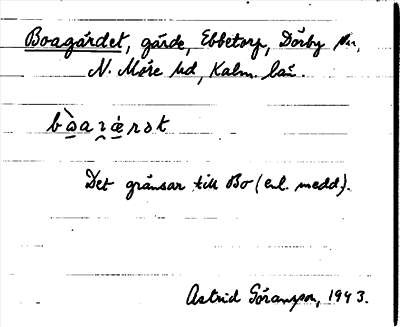 Boagärdet, gärde, Ebbetorp, Dörby sn,
N. Möre hd, Kalm. län.
bo̠a ɀæ̠rət
Det gränsar till Bo (enl. medd.).
Astrid Göransson, 1943.